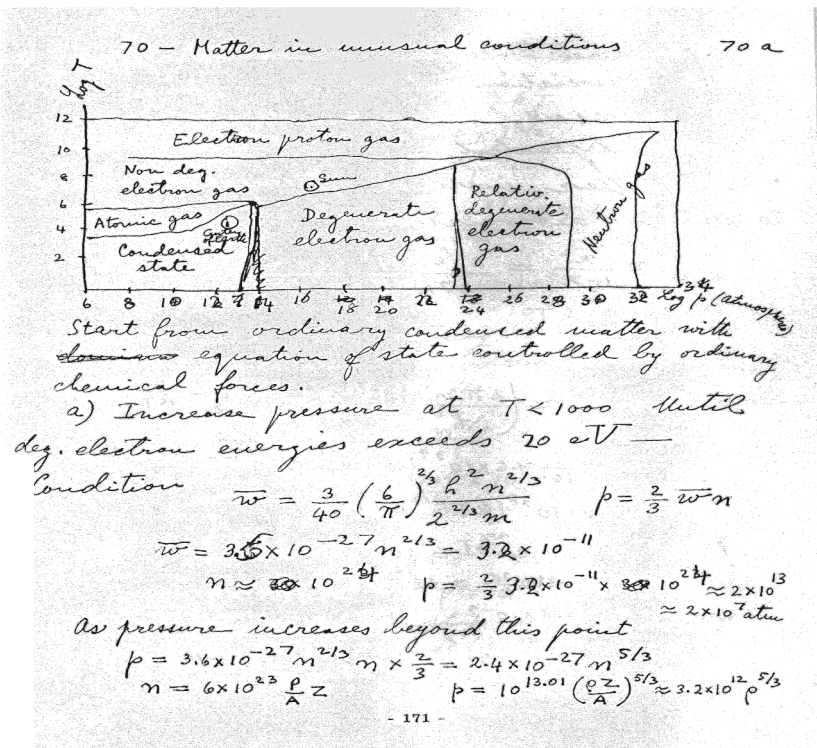 70 - Matter in unusual conditions 70 a
Log T
12
10
8
6
4
2
Electron proton gas
Non deg.
electron gas
Sun
Atomic gas
Center
of earth
Condensed
state
Degenerate
electron gas
Relativ.
degenerate
electron
gas
Neutron gas
6 8 10 12 14 16 18 20 22 24 26 28 30 32 34 Log p (atmospheres)
Start from ordinary condensed matter with
equation of state controlled by ordinary
chemical forces.
a) Increase pressure at T < 1000 Until
deg. electron energies exceeds 20 eV —
Condition w̄ = 3/40 (6/π)^2/3 h^2 n^2/3 / 2^2/3 m p = 2/3 w̄ n
w̄ = 3.5 × 10^-27 n^2/3 = 3.2 × 10^-11
n ≈ 10^24 p = 2/3 3.2 × 10^-11 × 10^24 ≈ 2 × 10^13
≈ 2 × 10^7 atm
As pressure increases beyond this point
p = 3.6 × 10^-27 n^2/3 n × 2/3 = 2.4 × 10^-27 n^5/3
n = 6 × 10^23 ρ/A Z p = 10^13.01 (ρZ/A)^5/3 ≈ 3.2 × 10^12 ρ^5/3
- 171 -